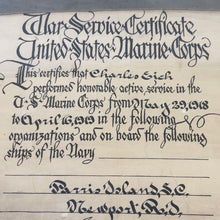 War Service Certificate
United States Marine Corps
This certifies that Charles Eich
performed honorable active service in the
U.S. Marine Corps from May 29, 1918
to April 16, 1919 in the following
organizations and on board the following
ships of the Navy
Parris Island, S.C.
Newport, R.I.